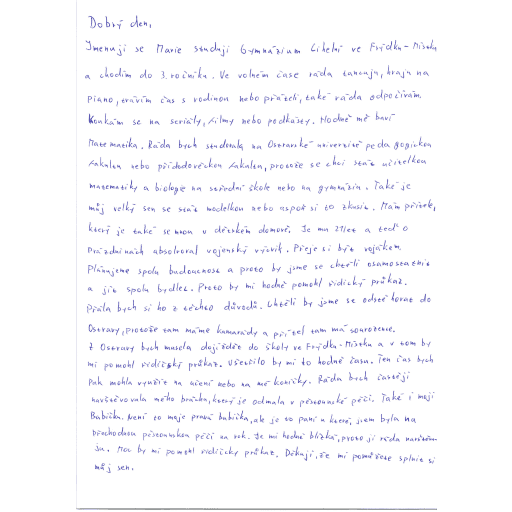 Dobrý den,
Jmenuji se Marie studuji Gymnázium Cihelní ve Frýdku-Místku
a chodím do 3. ročníku. Ve volném čase ráda tancuju, hraju na
piano, trávím čas s rodinou nebo přáteli, také ráda odpočívám.
Koukám se na seriály, filmy nebo podkásty. Hodně mě baví
Matematika. Ráda bych studovala na Ostravské univerzitě pedagogickou
fakultu nebo přírodovědckou fakultu, protože se chci stát učitelkou
matematiky a biologie na střední škole nebo na gymnáziu. Také je
můj velký sen se stát modelkou nebo aspoň si to zkusit. Mám přítele,
který je také se mnou v dětském domově. Je mu 21let a teď o
prázdninách absolvoval vojenský výcvik. Přeje si být vojákem.
Plánujeme spolu budoucnost a proto by jsme se chtěli osamostatnit
a jít spolu bydlet. Proto by mi hodně pomohl řidický průkaz.
Přála bych si ho z těchto důvodů. Chtěli by jsme se odstěhovat do
Ostravy, protože tam máme kamarády a přítel tam má sourozence.
Z Ostravy bych musela dojíždět do školy ve Frýdku-Místku a v tom by
mi pomohl řidičský průkaz. Ušetřilo by mi to hodně času. Ten čas bych
pak mohla využít na učení nebo na mé koníčky. Ráda bych častěji
navštěvovala mého bráchu, který je odmala v pěstounské péči. Také i moji
Babičku. Není to moje pravá babička, ale je to paní u které, jsem byla na
přechodnou pěstounskou péči na rok. Je mi hodně blízká, proto ji ráda navštěvu-
ju. Moc by mi pomohl řidičský průkaz. Děkuji, že mi pomůžete splnit si
můj sen.